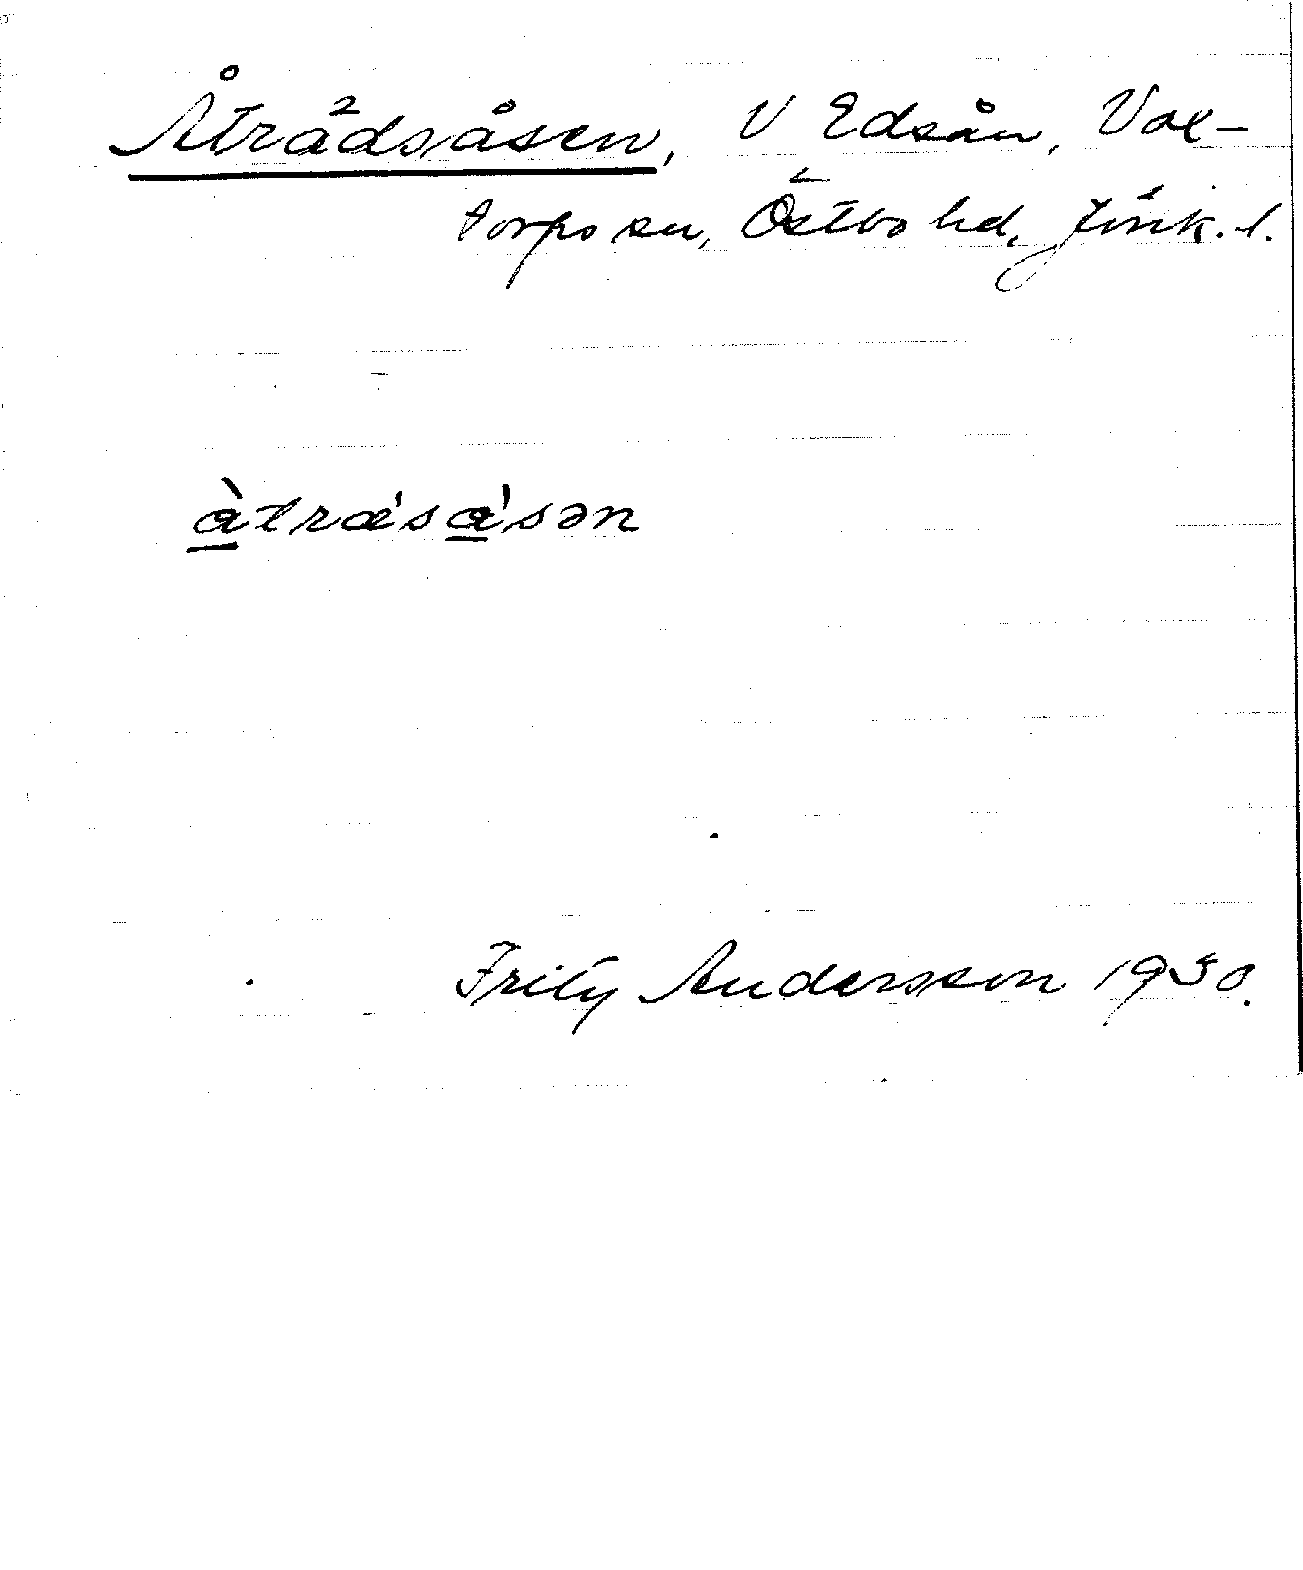 Åträdsåsen, V Edsån, Val-
torps sn, Östbo hd, Jönk. l.
àtræ's a'sən
Fritz Andersson 1930.